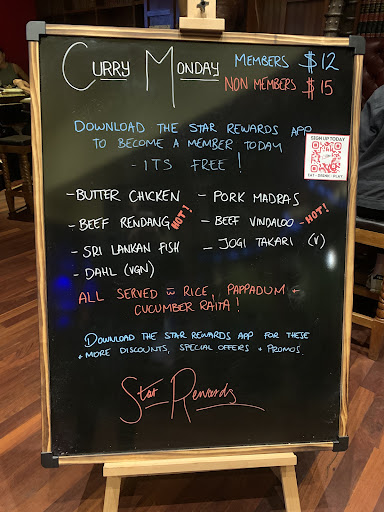 CURRY MONDAY
MEMBERS $12
NON MEMBERS $15
DOWNLOAD THE STAR REWARDS APP
TO BECOME A MEMBER TODAY
- ITS FREE!
SIGN UP TODAY
EAT · DRINK · PLAY
- BUTTER CHICKEN
- BEEF RENDANG HOT!
- SRI LANKAN FISH
- DAHL (VGN)
- PORK MADRAS
- BEEF VINDALOO - HOT!
- JOGI TAKARI (V)
ALL SERVED w RICE, PAPPADUM +
CUCUMBER RAITA!
DOWNLOAD THE STAR REWARDS APP FOR THESE
+ MORE DISCOUNTS, SPECIAL OFFERS + PROMOS
Star Rewards